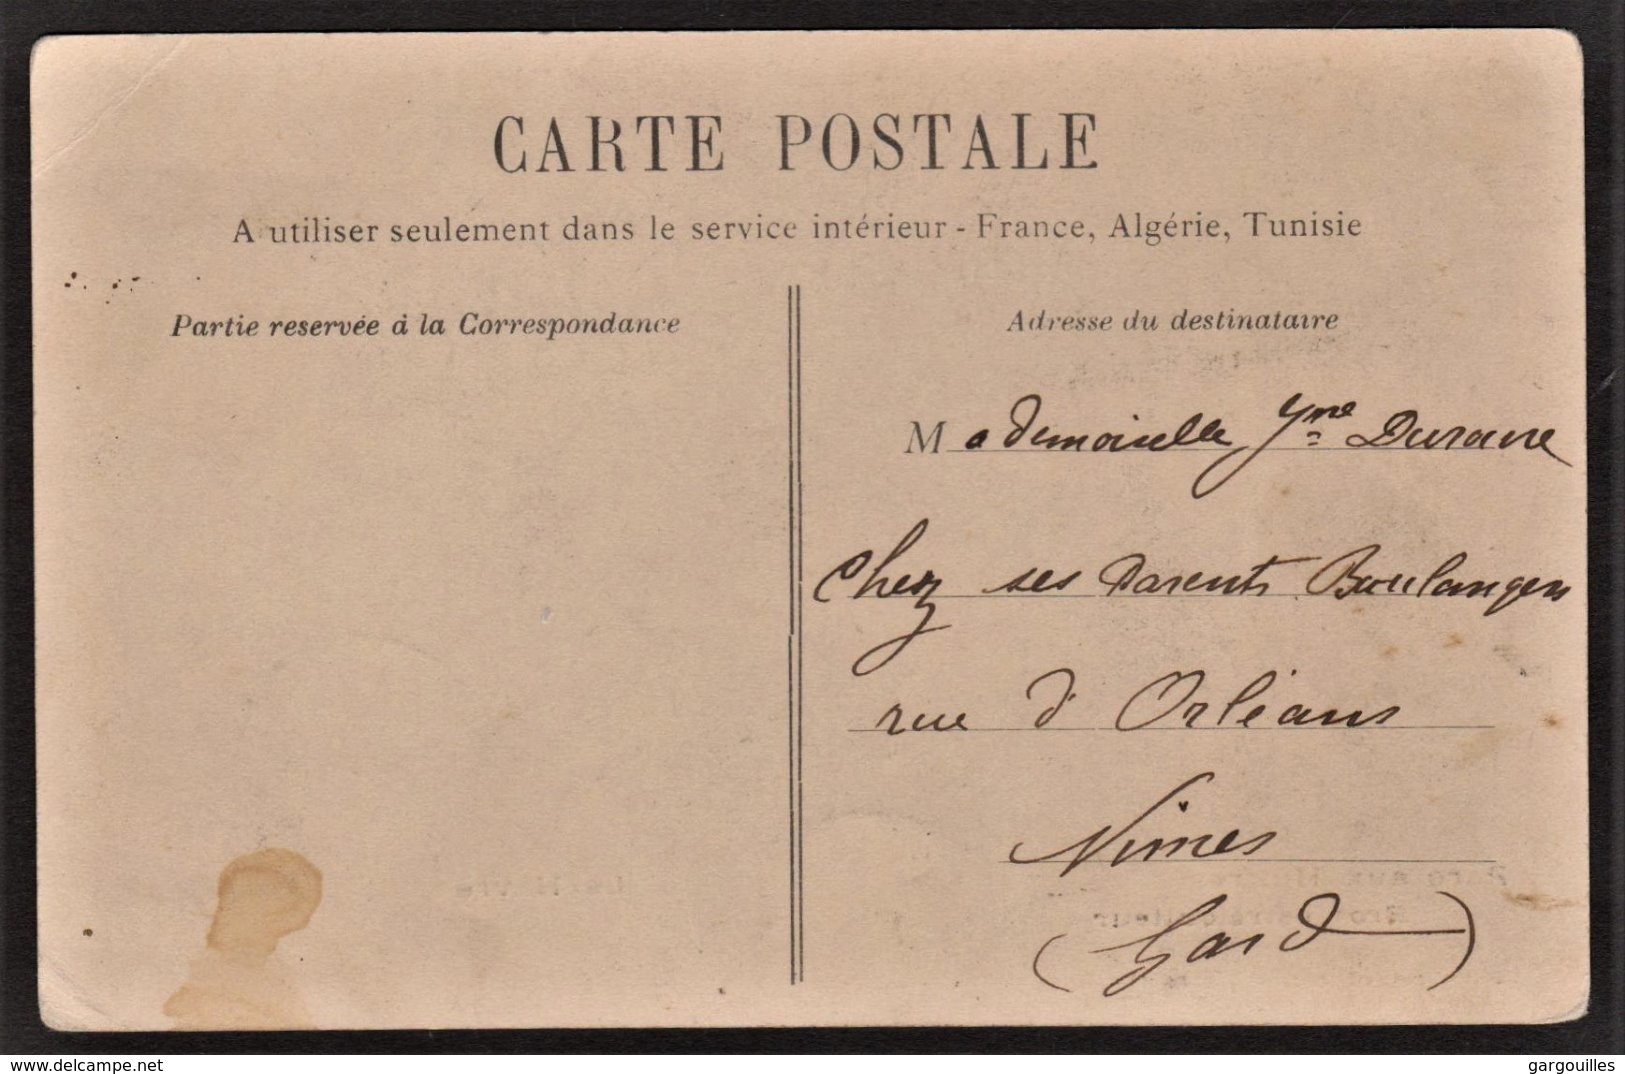 CARTE POSTALE
A utiliser seulement dans le service intérieur - France, Algérie, Tunisie
Partie reservée à la Correspondance
Adresse du destinataire
Mademoiselle Yne
Chez ses Parents Boulangers
rue d'Orléans
Nimes
(Gard)
delcampe.net
gargouilles